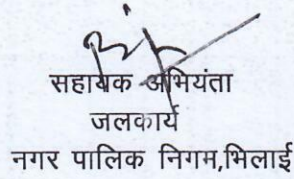 सहायक अभियंता
जलकार्य
नगर पालिक निगम,भिलाई